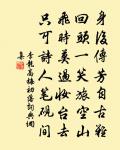 身後傳芳自古艱
回頭一笑旅空山
飛時莫過妝台去
只可詩人筆硯間
李龍高梅初落詞典網
集